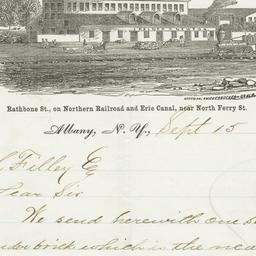 Rathbone St., on Northern Railroad and Erie Canal, near North Ferry St.
Albany, N. Y., Sept 15
Filley
Dear Sir
We send herewith one
brick which is the